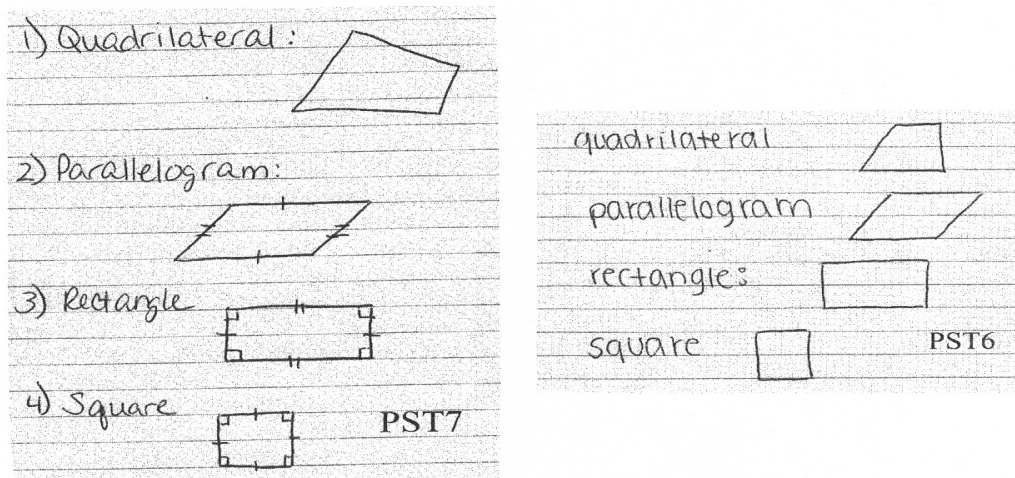 1) Quadrilateral:
2) Parallelogram:
3) Rectangle
4) Square
PST7
quadrilateral
parallelogram
rectangle:
square
PST6